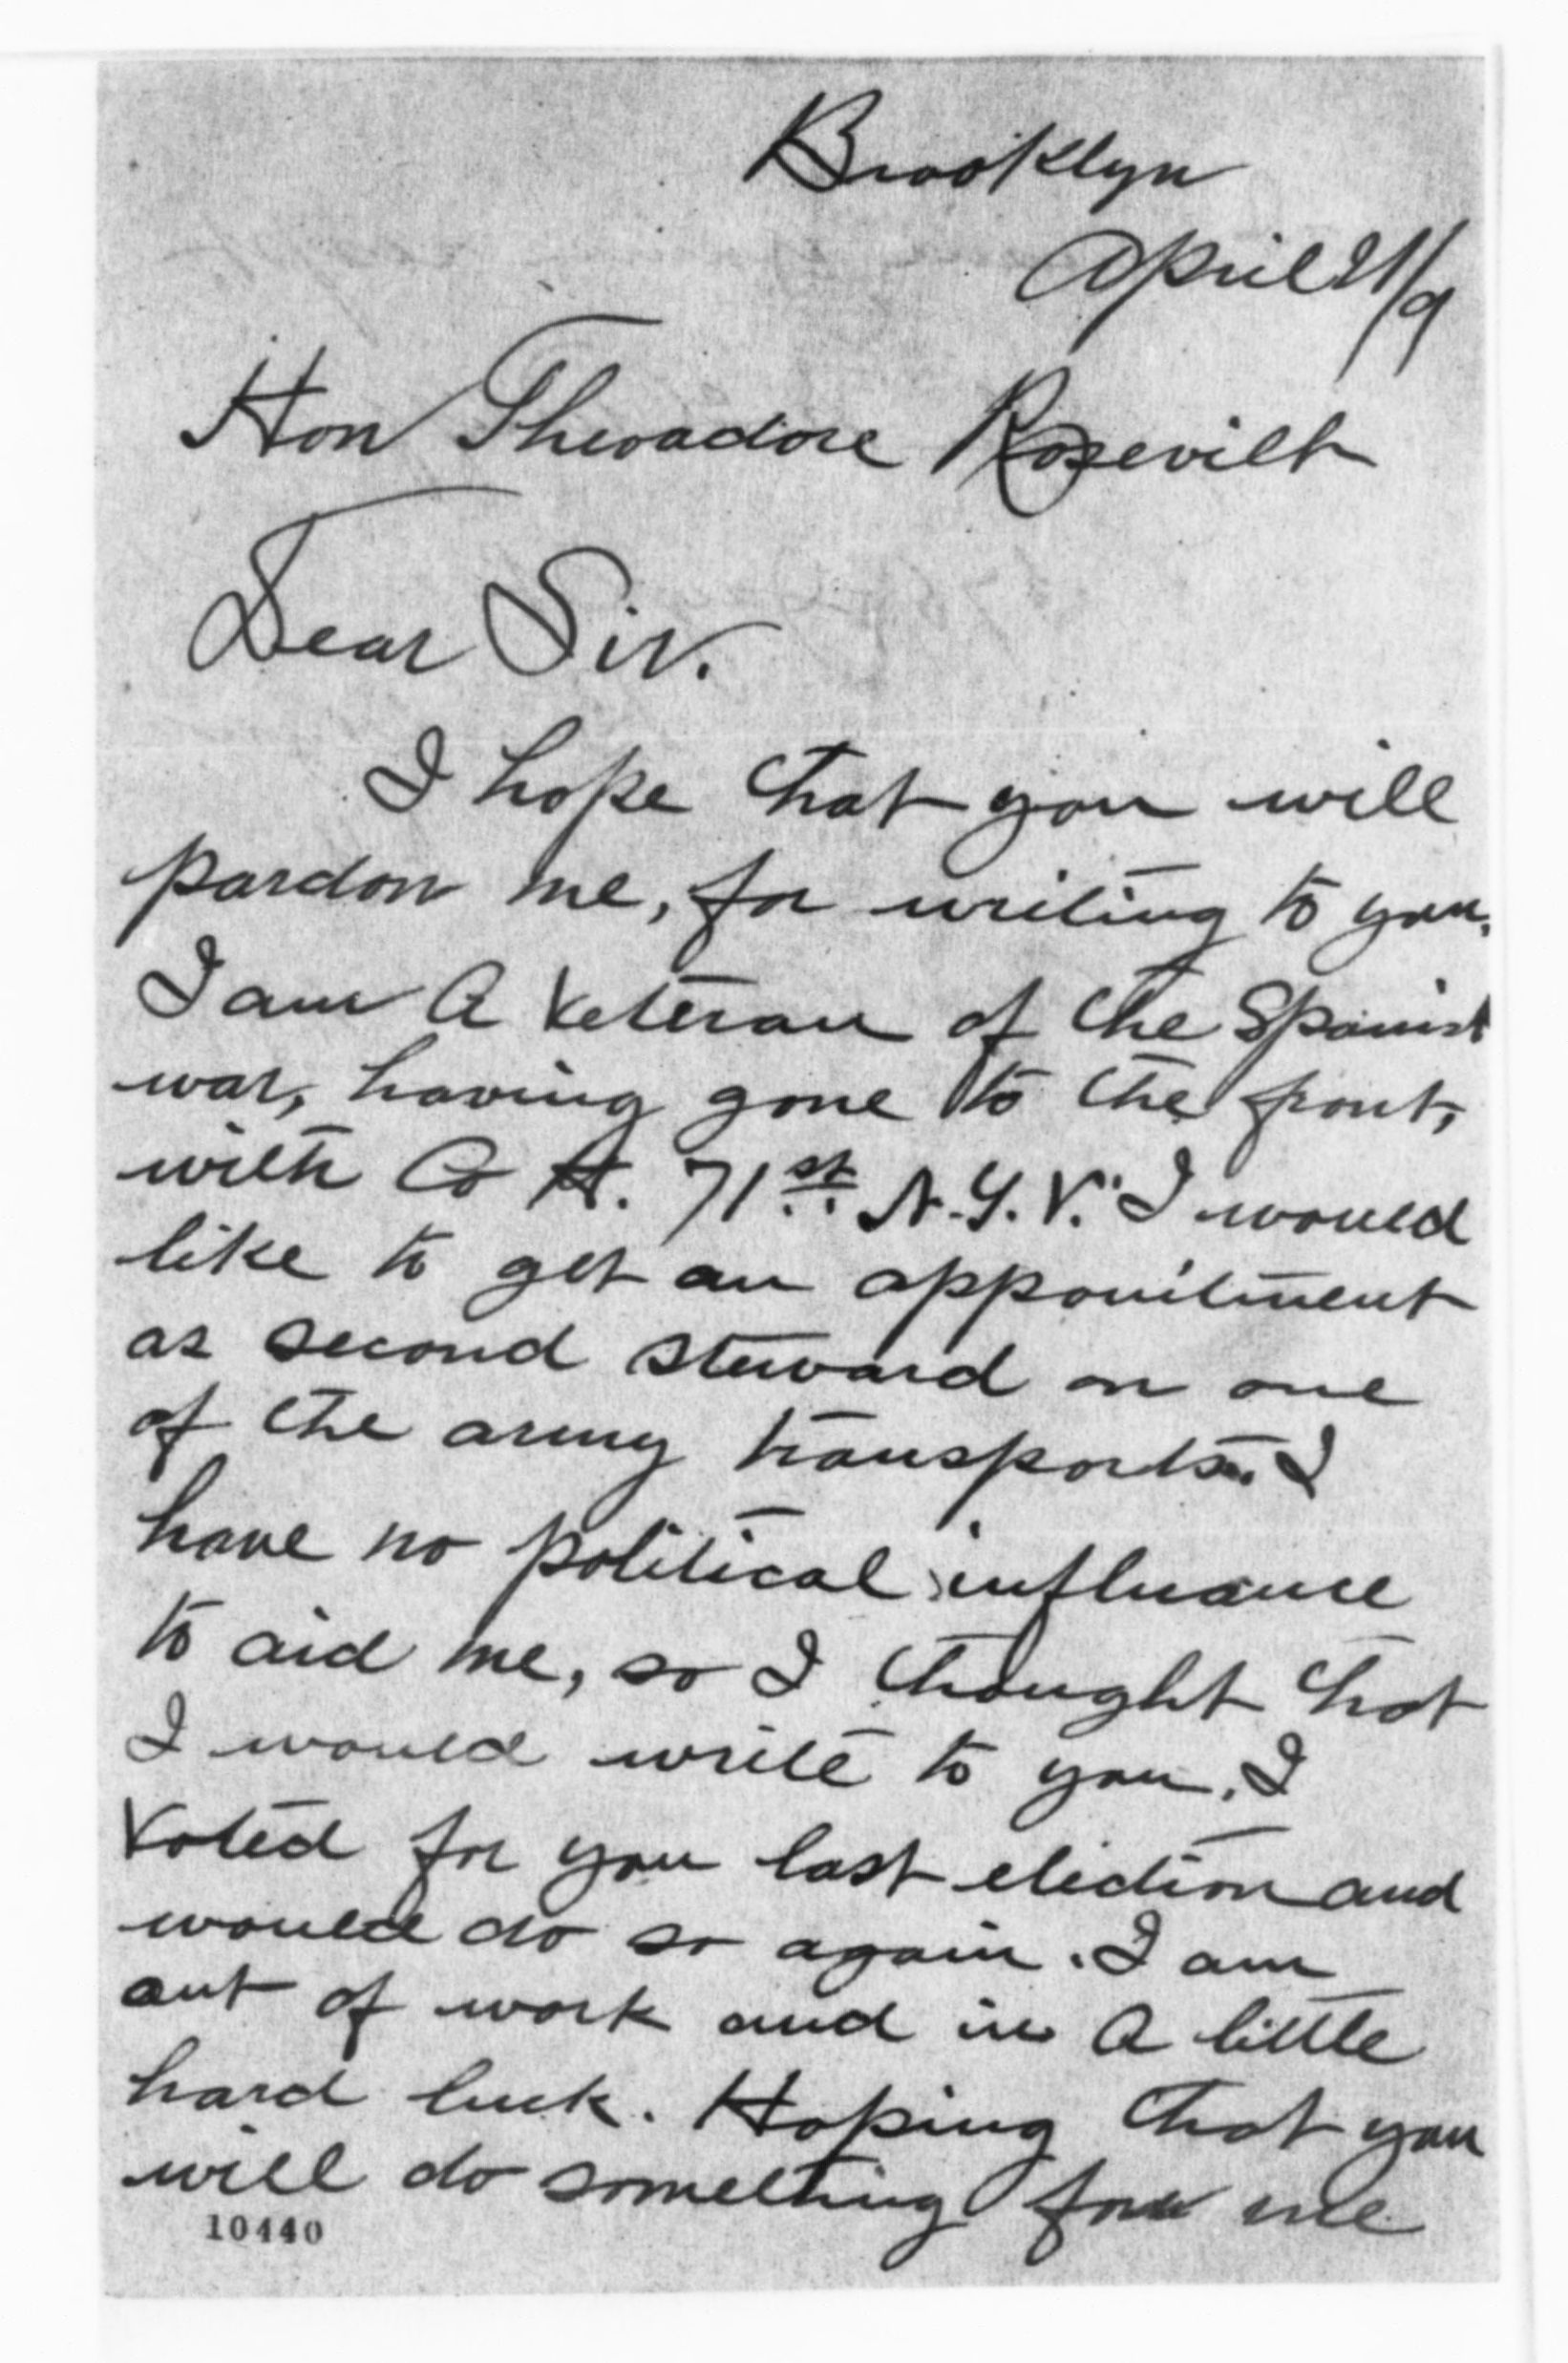 Brooklyn
April 21/9
Hon Theoadore Rosevilt
Dear Sir.
I hope that you will
pardon me, for writing to you.
I am A Veteran of the Spanish
war, having gone to the front,
with Co H. 71st N.Y.V. I would
like to get an appointment
as second steward on one
of the army transports. I
have no political influance
to aid me, so I thought that
I would write to you. I
Voted for you last election and
would do so again. I am
out of work and in A little
hard luck. Hoping that you
will do something for me
10440